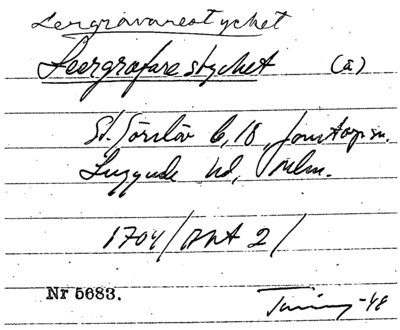 Lergravarestycket
Leergrafare stycket (ä)
St. Sörslöv 6,18, Jonstorp sn.
Luggude hd, Mlm.
1704/AKA 2/
Nr 5683.
-48